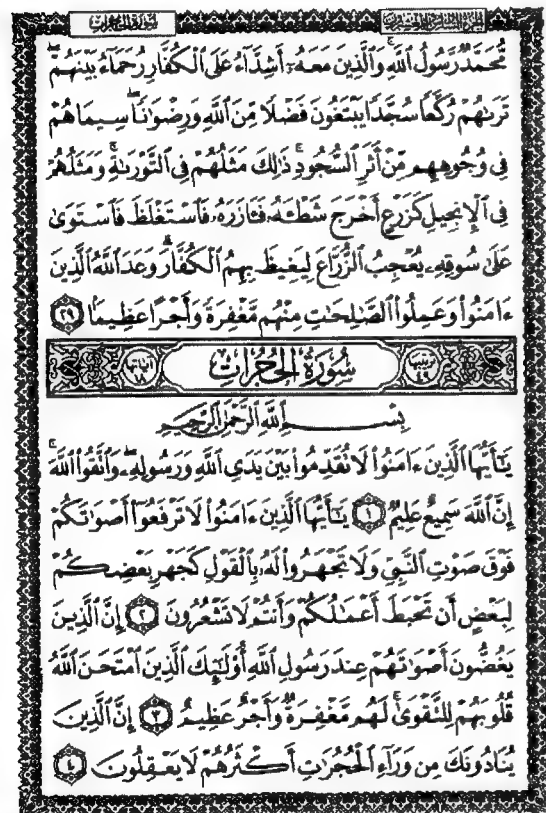 سُورَةُ الحُجُرَاتِ
الجزء السادس والعشرون
مُّحَمَّدٌ رَّسُولُ ٱللَّهِ وَٱلَّذِينَ مَعَهُۥٓ أَشِدَّآءُ عَلَى ٱلْكُفَّارِ رُحَمَآءُ بَيْنَهُمْ ۖ
تَرَىٰهُمْ رُكَّعًا سُجَّدًا يَبْتَغُونَ فَضْلًا مِّنَ ٱللَّهِ وَرِضْوَٰنًا ۖ سِيمَاهُمْ
فِى وُجُوهِهِم مِّنْ أَثَرِ ٱلسُّجُودِ ۚ ذَٰلِكَ مَثَلُهُمْ فِى ٱلتَّوْرَىٰةِ ۚ وَمَثَلُهُمْ
فِى ٱلْإِنجِيلِ كَزَرْعٍ أَخْرَجَ شَطْـَٔهُۥ فَـَٔازَرَهُۥ فَٱسْتَغْلَظَ فَٱسْتَوَىٰ
عَلَىٰ سُوقِهِۦ يُعْجِبُ ٱلزُّرَّاعَ لِيَغِيظَ بِهِمُ ٱلْكُفَّارَ ۗ وَعَدَ ٱللَّهُ ٱلَّذِينَ
ءَامَنُوا۟ وَعَمِلُوا۟ ٱلصَّٰلِحَٰتِ مِنْهُم مَّغْفِرَةً وَأَجْرًا عَظِيمًۢا ٢٩
ترتيبها ٤٩ سُورَةُ الحُجُرَاتِ آياتها ١٨
بِسْمِ ٱللَّهِ ٱلرَّحْمَٰنِ ٱلرَّحِيمِ
يَٰٓأَيُّهَا ٱلَّذِينَ ءَامَنُوا۟ لَا تُقَدِّمُوا۟ بَيْنَ يَدَىِ ٱللَّهِ وَرَسُولِهِۦ ۖ وَٱتَّقُوا۟ ٱللَّهَ ۚ
إِنَّ ٱللَّهَ سَمِيعٌ عَلِيمٌ ١ يَٰٓأَيُّهَا ٱلَّذِينَ ءَامَنُوا۟ لَا تَرْفَعُوٓا۟ أَصْوَٰتَكُمْ
فَوْقَ صَوْتِ ٱلنَّبِىِّ وَلَا تَجْهَرُوا۟ لَهُۥ بِٱلْقَوْلِ كَجَهْرِ بَعْضِكُمْ
لِبَعْضٍ أَن تَحْبَطَ أَعْمَٰلُكُمْ وَأَنتُمْ لَا تَشْعُرُونَ ٢ إِنَّ ٱلَّذِينَ
يَغُضُّونَ أَصْوَٰتَهُمْ عِندَ رَسُولِ ٱللَّهِ أُو۟لَٰٓئِكَ ٱلَّذِينَ ٱمْتَحَنَ ٱللَّهُ
قُلُوبَهُمْ لِلتَّقْوَىٰ ۚ لَهُم مَّغْفِرَةٌ وَأَجْرٌ عَظِيمٌ ٣ إِنَّ ٱلَّذِينَ
يُنَادُونَكَ مِن وَرَآءِ ٱلْحُجُرَٰتِ أَكْثَرُهُمْ لَا يَعْقِلُونَ ٤